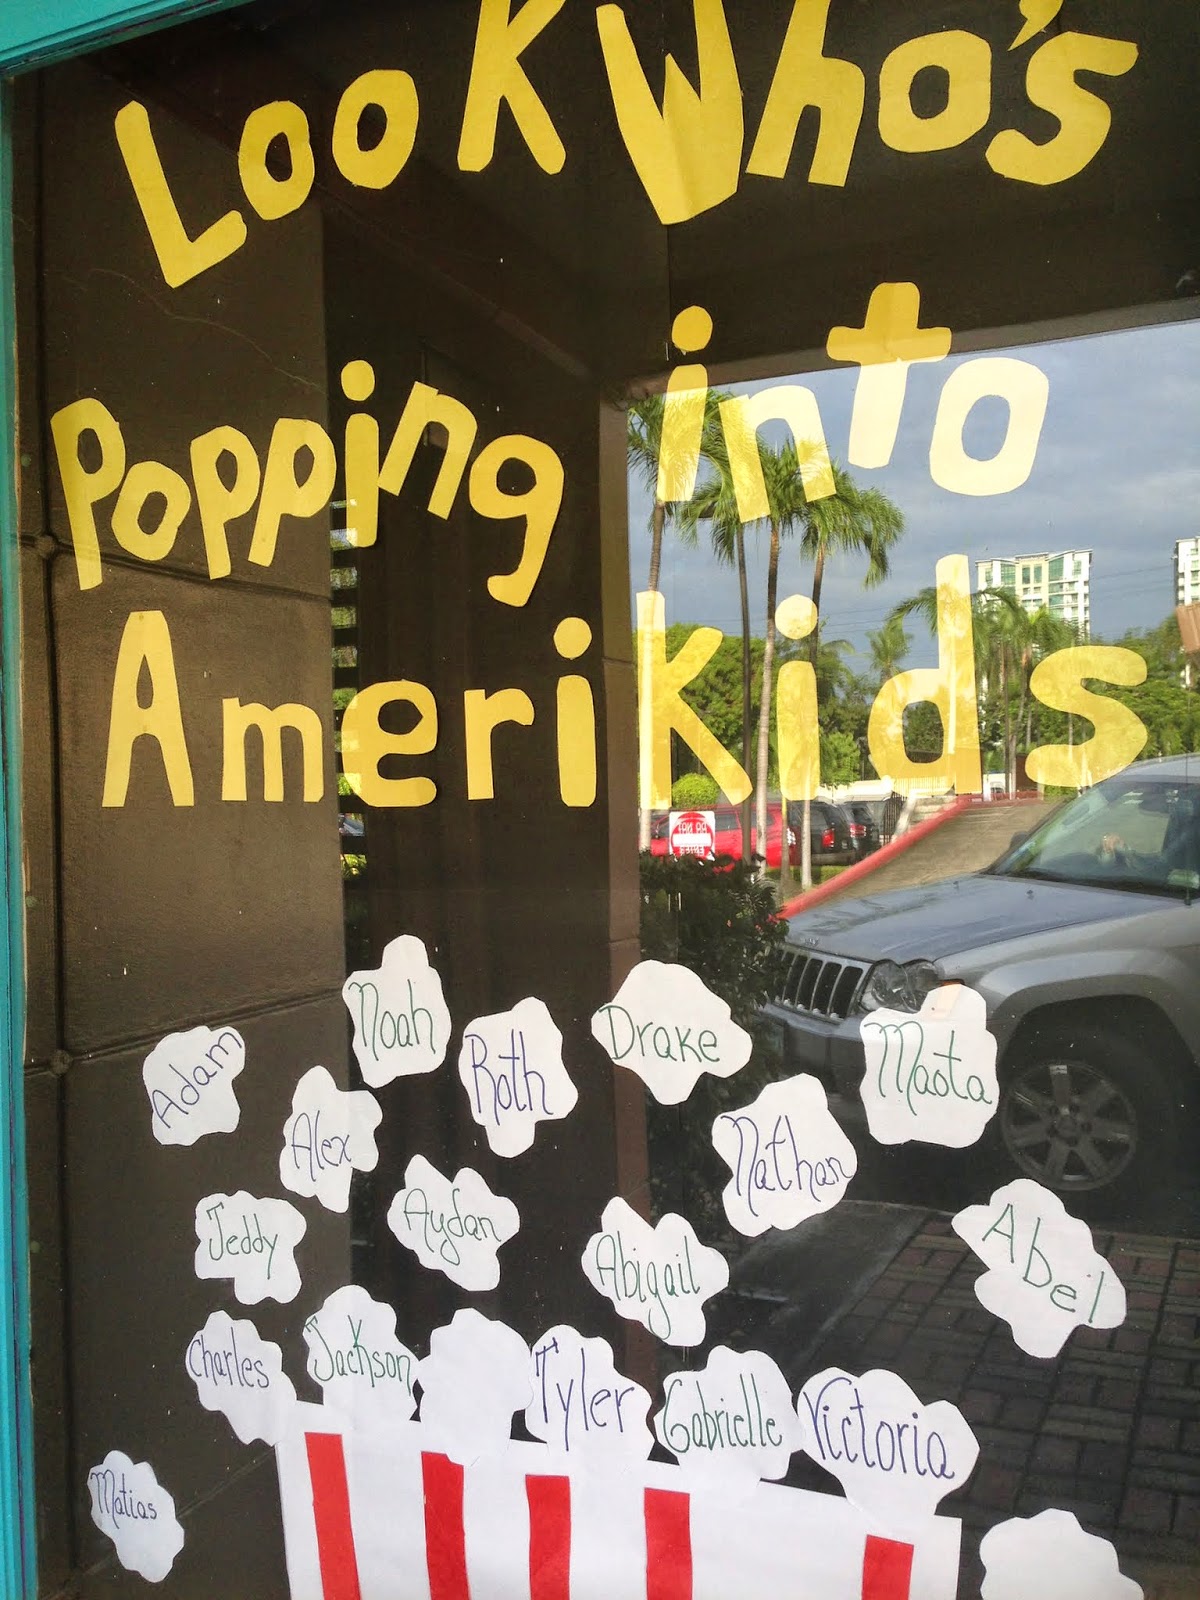 Look Who's
Popping into
AmeriKids
Noah
Roth
Drake
Maota
Adam
Alex
Nathan
Jeddy
Aydan
Abigail
Abeil
Charles
Jackson
Tyler
Gabrielle
Victoria
Matias
DO NOT
ENTER